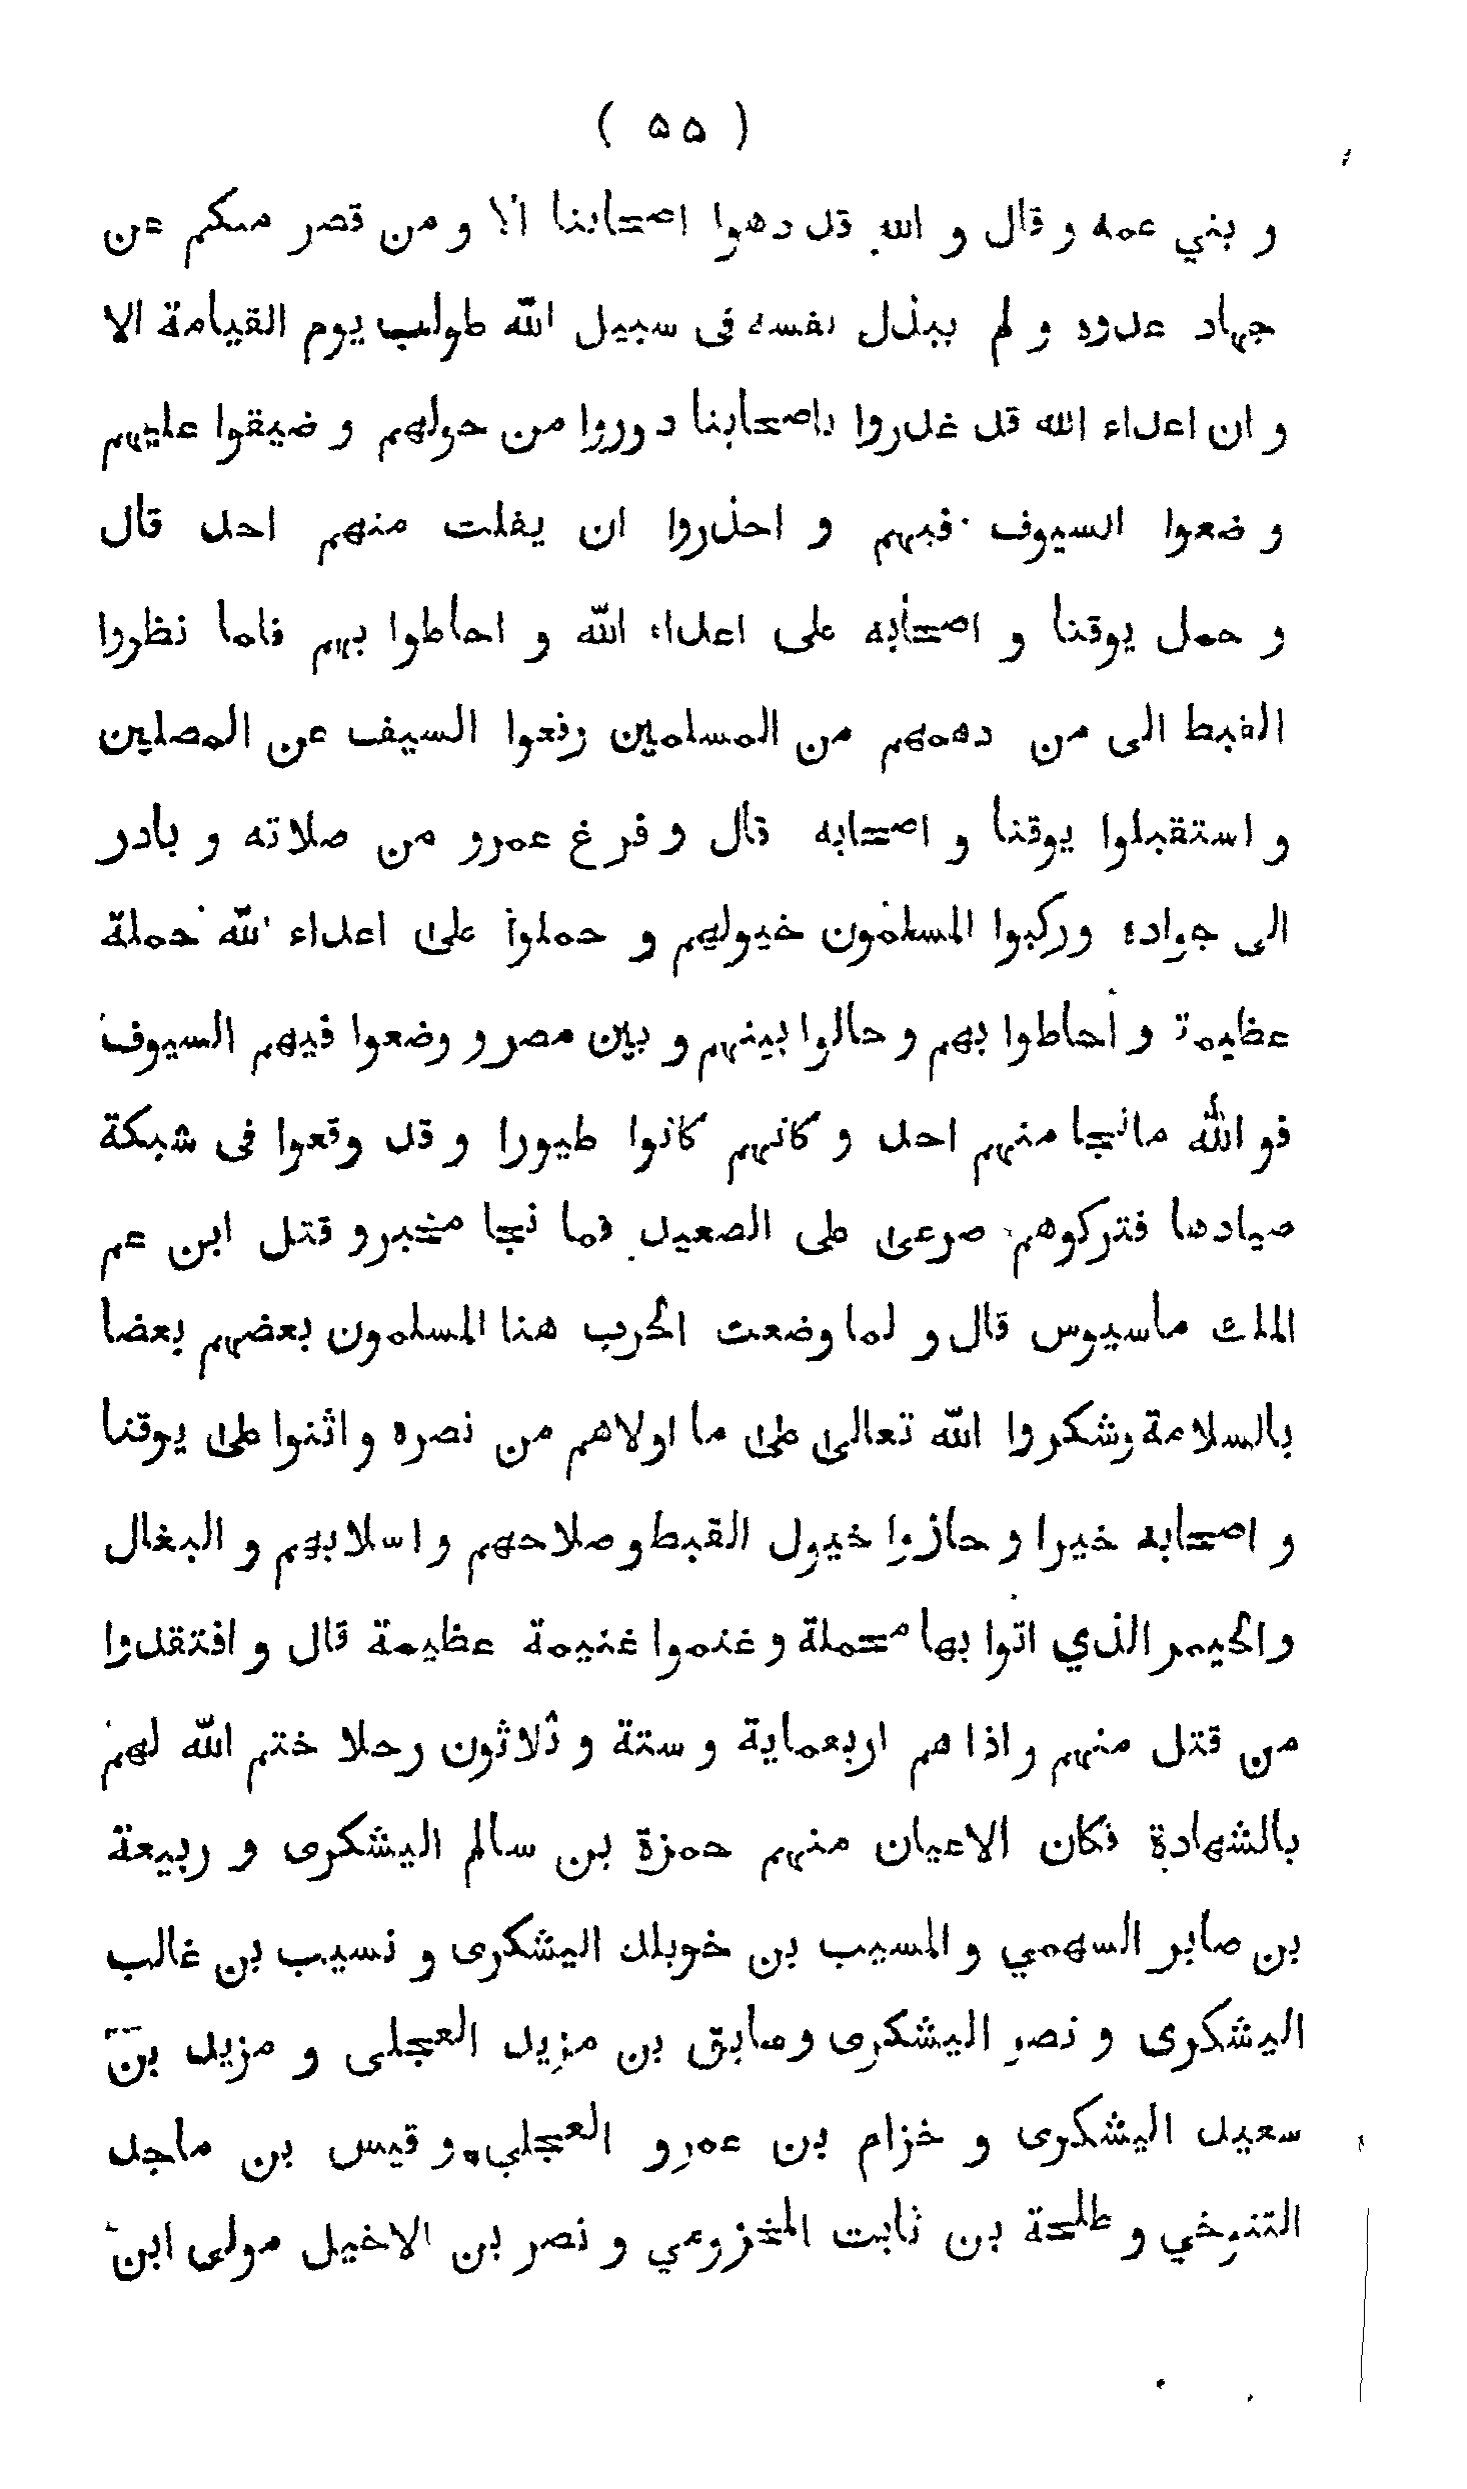 ( ۵۵ )
و بني عمه و قال و الله قد دهوا اصحابنا الا و من قصر منكم عن
جهاد عدوه و لم يبذل نفسه فى سبيل الله طولب يوم القيامة الا
و ان اعداء الله قد غدروا باصحابنا دوروا من حولهم و ضيقوا عليهم
و ضعوا السيوف فيهم و احذروا ان يفلت منهم احد قال
و حمل يوقنا و اصحابه على اعداء الله و احاطوا بهم فاما نظروا
القبط الى من دهمهم من المسلمين رفعوا السيف عن المصلين
و استقبلوا يوقنا و اصحابه قال و فرغ عمرو من صلاته و بادر
الى جواده وركبوا المسلمون خيولهم و حملوا على اعداء الله حملة
عظيمة و احاطوا بهم و حالوا بينهم و بين مصر و وضعوا فيهم السيوف
فو الله مانجا منهم احد و كانهم كانوا طيورا و قد وقعوا فى شبكة
صيادها فتركوهم صرعى على الصعيد فما نجا مخبر و قتل ابن عم
الملك ماسيوس قال و لما وضعت الحرب هنا المسلمون بعضهم بعضا
بالسلامة وشكروا الله تعالى على ما اولاهم من نصره و اثنوا على يوقنا
و اصحابه خيرا و حازوا خيول القبط و صلاحهم و اسلابهم و البغال
والحيمر الذي اتوا بها محملة و غنموا غنيمة عظيمة قال و افتقدوا
من قتل منهم و اذا هم اربعماية و ستة و ثلاثون رحلا ختم الله لهم
بالشهادة فكان الاعيان منهم حمزة بن سالم اليشكرى و ربيعة
بن صابر السهمي و المسيب بن خويلد اليشكرى و نسيب بن غالب
اليشكرى و نصر اليشكرى و سابق بن مزيد العجلى و مزيد بن
سعيد اليشكرى و خزام بن عمرو العجلي و قيس بن ماجد
التنوخي و طلحة بن ثابت المخزومي و نصر بن الاخيل مولى ابن